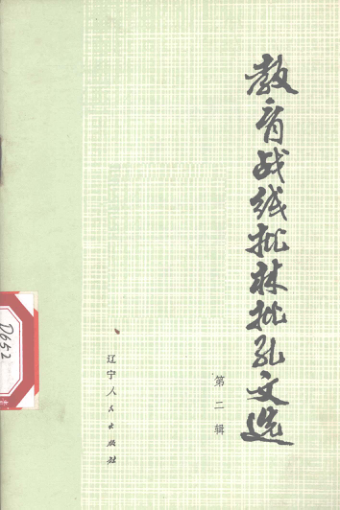 教育战线批林批孔文选
第二辑
辽宁人民出版社
D652